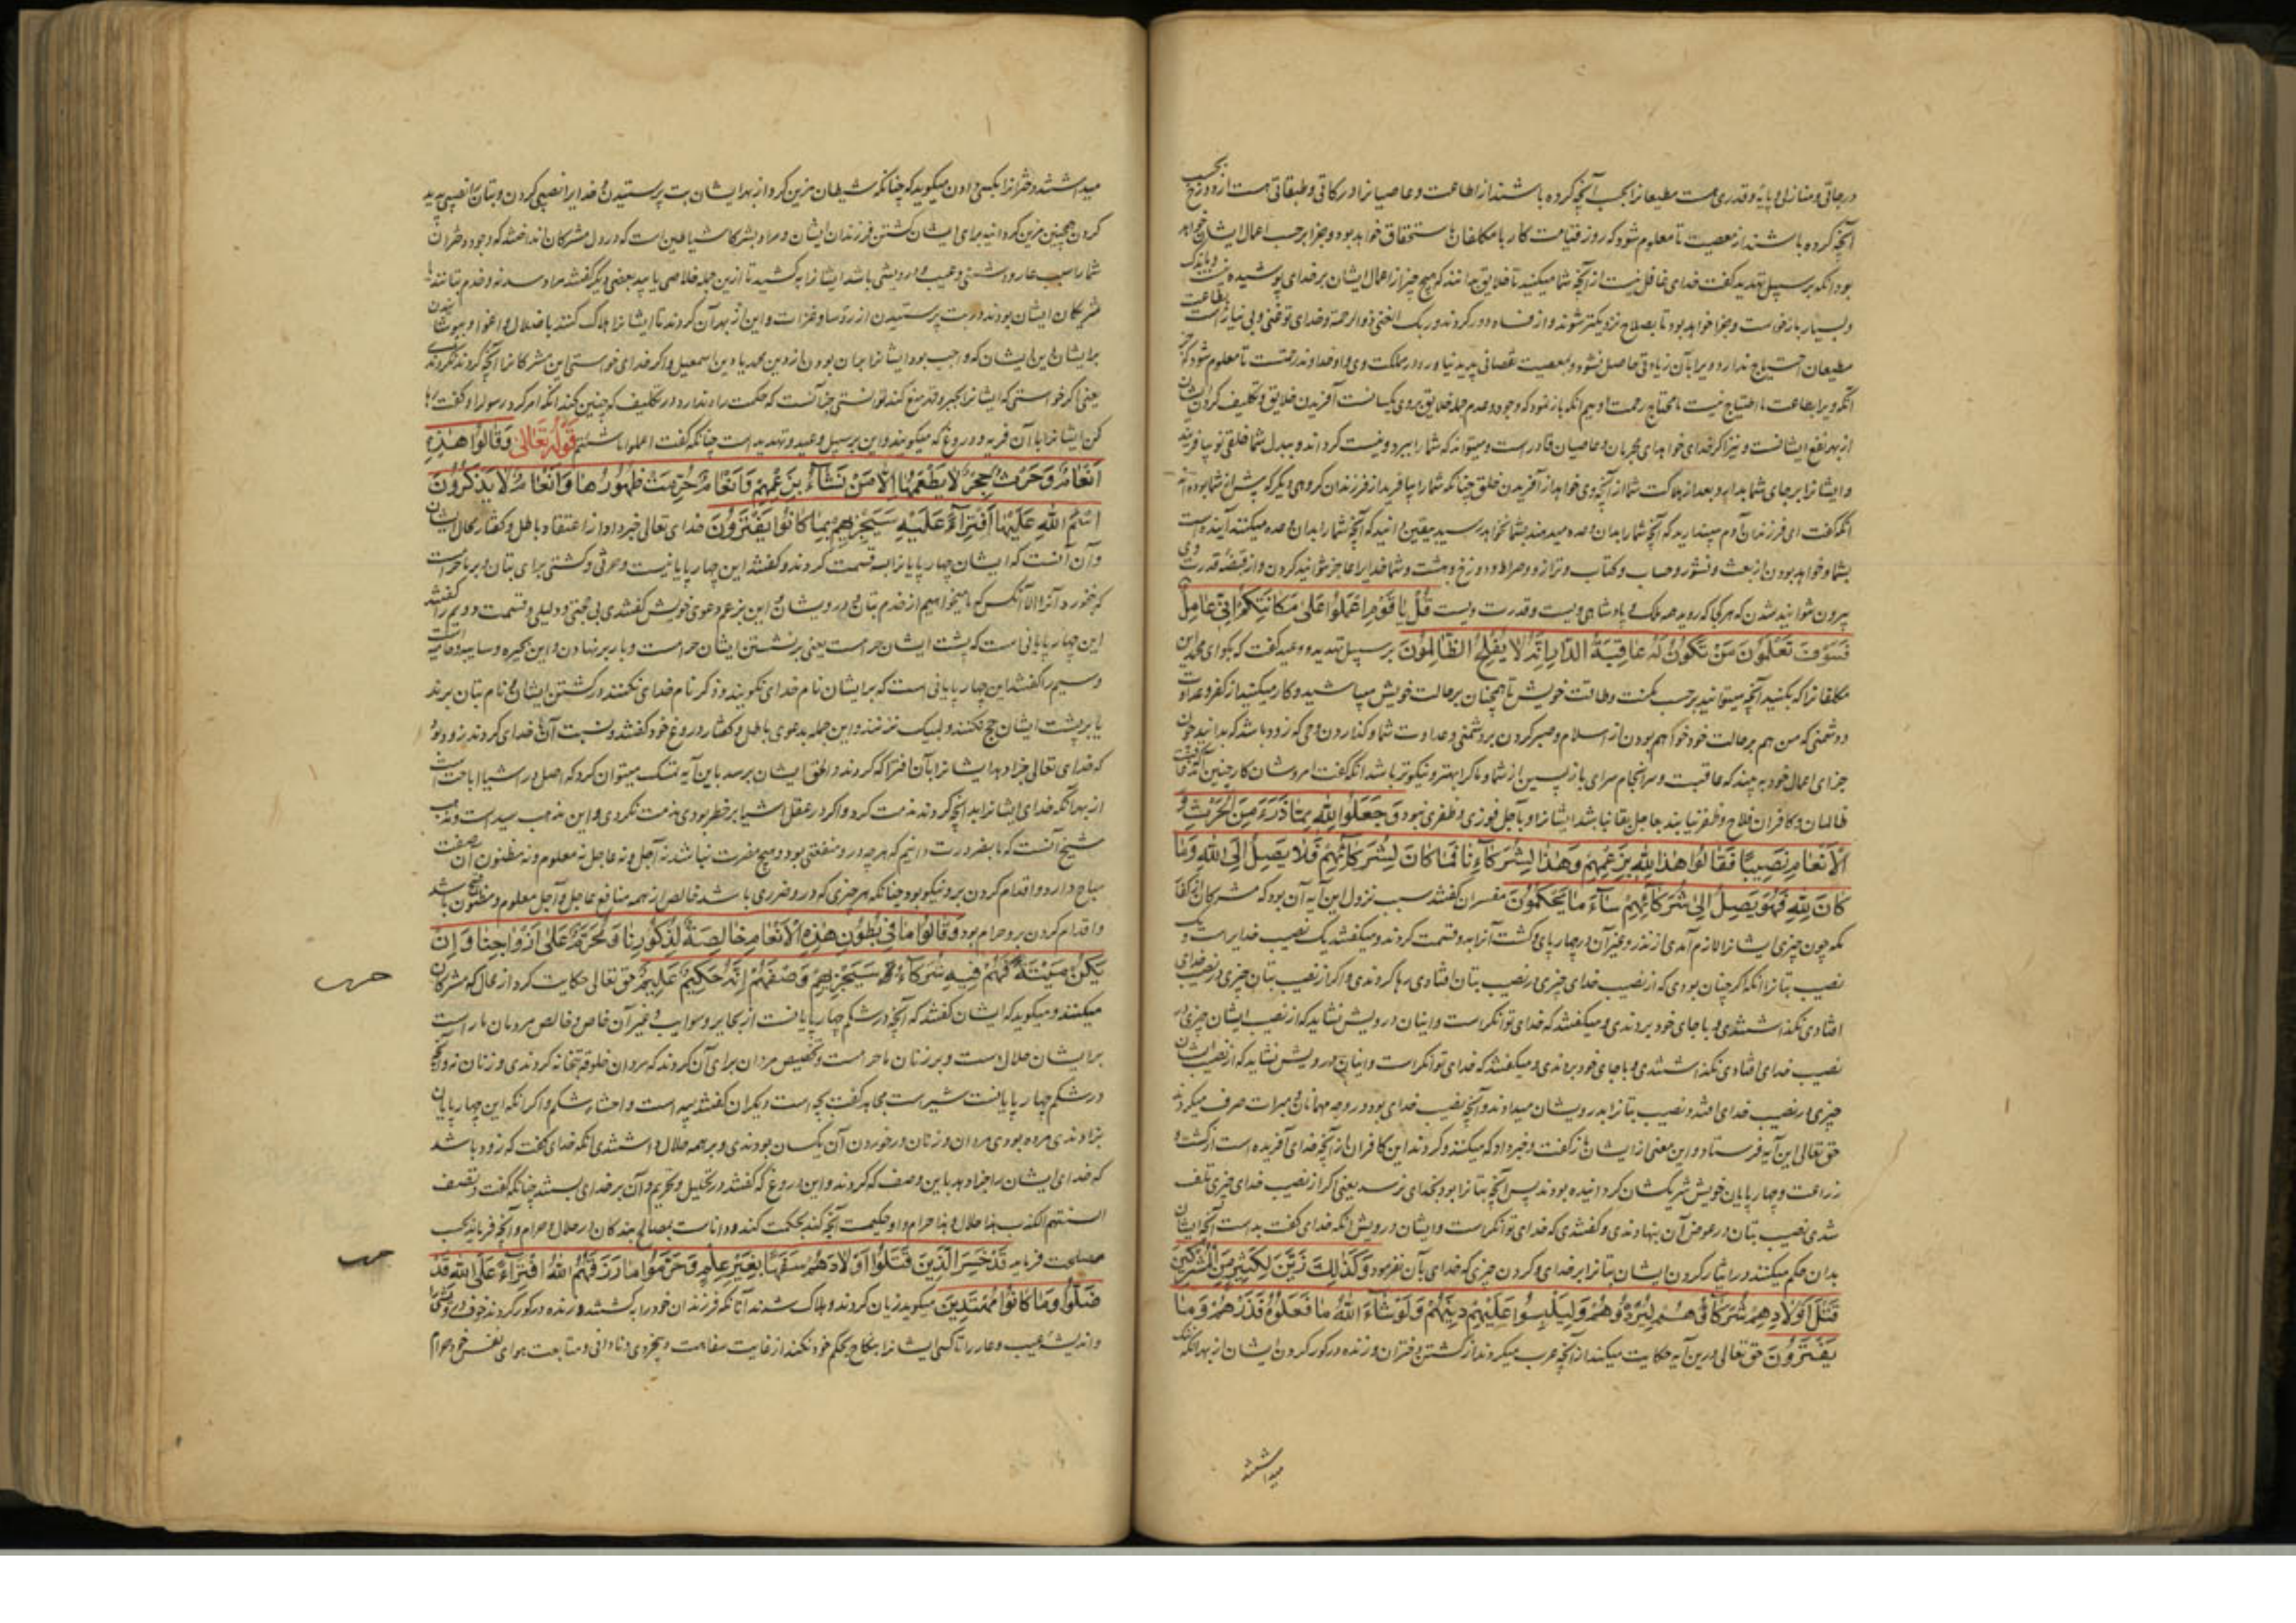 درجاتی و منازلی و پایهٔ و قدری هست مطیعانرا بحسب آنچه کرده باشند از طاعت و عاصیانرا درکاتی و طبقاتی هست از دوزخ بحسب
آنچه کرده باشند از معصیت تا معلوم شود که روز قیامت کار با مکلفان باستحقاق خواهد بود و جزا بر حسب اعمال ایشان خواهد
بود آنگه بر سبیل تهدید گفت خدای غافل نیست از آنچه شما میکنید تا خلایق بدانند که هیچ چیز از اعمال ایشان بر خدای پوشیده نیست
و بسیار بازخواست و جزا خواهد بود تا بصلاح نزدیکتر شوند و از فساد دور گردند و ربک الغنی ذو الرحمة و خدای تو غنی و بی نیاز است
مطیعان احتیاج ندارد و ویرا بآن زیادتی حاصل نشود و بمعصیت نقصانی پدید نیاورد در مملکت وی و او خداوند رحمتست تا معلوم شود که
آنکه ویرا بطاعت ما احتیاج نیست ما محتاج رحمت اوییم آنکه باز نمود که وجود و عدم جمله خلایق بر وی یکسانست آفریدن خلایق و تکلیف کردن ایشان
از بهر نفع ایشانست و نیز اگر خدای خواهد ای مجرمان و عاصیان قادر است و میتواند که شما را ببرد و نیست گرداند و ببدل شما خلقی نو بیافریند
و ایشانرا بر جای شما بدارد و بعد از هلاکت شما از آنچه وی خواهد از آفریدن خلق چنانکه شما را بیافرید از فرزندان گروهی دیگر که پیش از شما بوده اند
آنگه گفت ای فرزندان آدم مپندارید که آنچه شما را بدان وعده میدهند بشما نخواهد رسید بیقین دانید که آنچه شما را بدان وعده میکنند آینده است
بشما و خواهد بودن از بعث و نشور و حساب و کتاب و ترازو و صراط و دوزخ و بهشت و شما خدایرا عاجز نتوانید کردن و از قبضهٔ قدرت وی
بیرون نتوانید شدن که هر کجا که روید همه ملک و پادشاهی ویست و قدرت ویست قُلْ يَا قَوْمِ اعْمَلُوا عَلَى مَكَانَتِكُمْ إِنِّي عَامِلٌ
فَسَوْفَ تَعْلَمُونَ مَنْ تَكُونُ لَهُ عَاقِبَةُ الدَّارِ إِنَّهُ لَا يُفْلِحُ الظَّالِمُونَ بر سبیل تهدید و وعید گفت که بگو ای محمد این
مکلفانرا که بکنید آنچه میتوانید بر حسب مکنت و طاقت خویش تا همچنان بر حالت خویش میباشید و کار میکنید از کفر و عداوت
و دشمنی که من هم بر حالت خود خواهم بودن از اسلام و صبر کردن بر دشمنی و عداوت شما و گذاردن وحی که زود باشد که بدانید چون
جزای اعمال خود ببینید که عاقبت و سرانجام سرای بازپسین از شما و ما کرا بهتر و نیکوتر باشد آنگه گفت امروشان کار چنین
ظالمان و کافران فلاح و ظفر نیابند بعاجل بقا نباشد ایشانرا و بآجل فوزی و ظفری نبود وَجَعَلُوا لِلَّهِ مِمَّا ذَرَأَ مِنَ الْحَرْثِ وَ
الْأَنْعَامِ نَصِيبًا فَقَالُوا هَذَا لِلَّهِ بِزَعْمِهِمْ وَهَذَا لِشُرَكَائِنَا فَمَا كَانَ لِشُرَكَائِهِمْ فَلَا يَصِلُ إِلَى اللَّهِ وَمَا
كَانَ لِلَّهِ فَهُوَ يَصِلُ إِلَى شُرَكَائِهِمْ سَاءَ مَا يَحْكُمُونَ مفسران گفتند سبب نزول این آیه آن بود که مشرکان
چون چیزی ایشانرا لازم آمدی از نذر و غیر آن در چهارپای و کشت آنرا بدو قسمت کردند و میگفتند یک نصیب خدایراست و یک
نصیب بتانرا آنگه اگر چنان بودی که از نصیب خدای چیزی در نصیب بتان افتادی رها کردندی و اگر از نصیب بتان چیزی در نصیب خدای
افتادی نگذاشتندی و با جای خود بردندی و میگفتند که خدای توانگر است و اینان درویش نشاید که از نصیب ایشان چیزی در
نصیب خدای افتادی نگذاشتندی و با جای خود بردندی و میگفتند که خدای توانگر است و اینان درویش نشاید که از نصیب ایشان
چیزی در نصیب خدای افتد و نصیب بتانرا بدرویشان میدادند و آنچه نصیب خدای بود در وجه مهمانان و میرات صرف میکردند
حق تعالی این آیه فرستاد و این معنی از ایشان باز گفت و خبر داد که میکنند و کردند این کافران از آنچه خدای آفریده است از کشت و
زراعت و چهارپایان خویش شریکشان گردانیده بودند پس آنچه بتانرا بود بخدای نرسد یعنی اگر از نصیب خدای چیزی تلف
شدی نصیب بتان در عوض آن بنهادندی و گفتندی که خدای توانگر است و ایشان درویش آنگه خدای گفت بد است آنچه ایشان
بدان حکم میکنند در ایثار کردن ایشان بتانرا بر خدای و کردن چیزی که خدای بآن نفرمود وَكَذَلِكَ زَيَّنَ لِكَثِيرٍ مِنَ الْمُشْرِكِينَ
قَتْلَ أَوْلَادِهِمْ شُرَكَاؤُهُمْ لِيُرْدُوهُمْ وَلِيَلْبِسُوا عَلَيْهِمْ دِينَهُمْ وَلَوْ شَاءَ اللَّهُ مَا فَعَلُوهُ فَذَرْهُمْ وَمَا
يَفْتَرُونَ حق تعالی درین آیه حکایت میکند از آنچه عرب میکردند از کشتن دختران و زنده در گور کردن ایشان از بهر آنکه
میداشتند
میداشتند دخترانرا بکسی دادن میگوید که چنانکه شیطان مزین کرد از بهر ایشان بت پرستیدن و خدایرا نصیبی کردن و بتانرا نصیبی پدید
کردن همچنین مزین گردانید برای ایشان کشتن فرزندان ایشان و مراد بشرکا شیاطین است که در دل مشرکان انداختند که وجود دختران
شما را سبب عار و دشمنی و عیب و درویشی باشد ایشانرا بکشید تا ازین جمله خلاصی یابید بعضی دیگر گفتند مراد سدنه و خدم بتانند
مشرکان ایشان بودند در بت پرستیدن از رؤسا و غزات و این از بهر آن کردند تا ایشانرا هلاک کنند باضلال و اغوا و بپوشانیدن
بر ایشان دین ایشان که واجب بود ایشانرا بدان بودن از دین محمد یا دین اسمعیل و اگر خدای خواستی این مشرکانرا آنچه کردند نکردندی
یعنی اگر خواستی که ایشانرا بجبر و قهر منع کند توانستی جز آنست که حکمت راه ندارد در تکلیف که چنین کند آنگه امر کرد رسولرا و گفت رها
کن ایشانرا با آن فریه و دروغ که میگویند و این بر سبیل وعید و تهدید است چنانکه گفت اعملوا ما شئتم قوله تعالی وَقَالُوا هَذِهِ
أَنْعَامٌ وَحَرْثٌ حِجْرٌ لَا يَطْعَمُهَا إِلَّا مَنْ نَشَاءُ بِزَعْمِهِمْ وَأَنْعَامٌ حُرِّمَتْ ظُهُورُهَا وَأَنْعَامٌ لَا يَذْكُرُونَ
اسْمَ اللَّهِ عَلَيْهَا افْتِرَاءً عَلَيْهِ سَيَجْزِيهِمْ بِمَا كَانُوا يَفْتَرُونَ خدای تعالی خبر داد از اعتقاد باطل و گفتار محال ایشان
و آن آنست که ایشان چهارپایانرا بسه قسمت کردند و گفتند این چهارپایانیست و حرثی و کشتی برای بتان و بر ما حرامست
که نخورد آنرا الا آنکس که ما میخواهیم از خدم بتان و درویشان و این بزعم و دعوی خویش گفتندی بی حجتی و دلیلی و قسمت دویم را گفتند
این چهارپایانی است که پشت ایشان حرامست یعنی برنشستن ایشان حرامست و بار برنهادن و این بحیره و سایبه و حامیست
و سیم را گفتند این چهارپایانی است که بر ایشان نام خدای نگویند و ذکر نام خدای نکنند در کشتن ایشان و نام بتان برند
یا بر پشت ایشان حج نکنند و لبیک نزنند و این جمله بدعوی باطل و گفتار دروغ خود گفتند و نسبت آن با خدای کردند زود بود
که خدای تعالی جزا دهد ایشانرا بآن افترا که کردند و الحق ایشان برسد باین آیه تمسک میتوان کرد که اصل در اشیا اباحت است
از بهر آنکه خدای ایشانرا بدانچه کردند مذمت کرد و اگر در عقل اشیا بر خطر بودی مذمت نکردی و این مذهب سید است و مذهب
شیخ آنست که ما بضرورت دانیم که هر چه در و منفعتی بود و هیچ مضرت نباشد نه آجل و نه عاجل نه معلوم و نه مظنون آن صفت
مباح دارد و اقدام کردن برو نیکو بود چنانکه هر چیزی که در و ضرری باشد خالص از همه منافع عاجل و آجل معلوم و مظنون قبیح باشد
و اقدام کردن برو حرام بود وَقَالُوا مَا فِي بُطُونِ هَذِهِ الْأَنْعَامِ خَالِصَةٌ لِذُكُورِنَا وَمُحَرَّمٌ عَلَى أَزْوَاجِنَا وَإِنْ
يَكُنْ مَيْتَةً فَهُمْ فِيهِ شُرَكَاءُ سَيَجْزِيهِمْ وَصْفَهُمْ إِنَّهُ حَكِيمٌ عَلِيمٌ حق تعالی حکایت کرد از حال که مشرکان
میکنند و میگوید که ایشان گفتند که آنچه در شکم چهارپایانست از بحایر و سوایب و غیر آن خاص و خالص مردمان ماراست
بر ایشان حلالست و بر زنان ما حرامست و تخصیص مردان برای آن کردند که مردان خلوه بتخانه کردندی و زنان نه و آنچه
در شکم چهارپایانست شیر است مجاهد گفت بچه است دیگران گفتند پیه است و احشاء شکم و اگر آنکه این چهارپایان
بزادندی مرده بودی مردان و زنان در خوردن آن یکسان بودندی و بر همه حلال داشتندی آنگه خدای گفت که زود باشد
که خدای ایشان را جزا دهد باین وصف که کردند و این دروغ که گفتند در تحلیل و تحریم و آن بر خدای بستند چنانکه گفت و تصف
السنتهم الکذب هذا حلال و هذا حرام و او حکیمست آنچه کند بحکمت کند و داناست بمصالح بندگان در حلال و حرام و آنچه فرماید بحسب
مصلحت فرماید قَدْ خَسِرَ الَّذِينَ قَتَلُوا أَوْلَادَهُمْ سَفَهًا بِغَيْرِ عِلْمٍ وَحَرَّمُوا مَا رَزَقَهُمُ اللَّهُ افْتِرَاءً عَلَى اللَّهِ قَدْ
ضَلُّوا وَمَا كَانُوا مُهْتَدِينَ میگوید زیان کردند و هلاک شدند آنانکه فرزندان خود را بکشتند و زنده در گور کردند خوف
و اندیشهٔ عیب و عار را تا کسی ایشانرا بنکاح بحکم خود نکند از غایت سفاهت و بیخردی و نادانی و متابعت هوای نفس